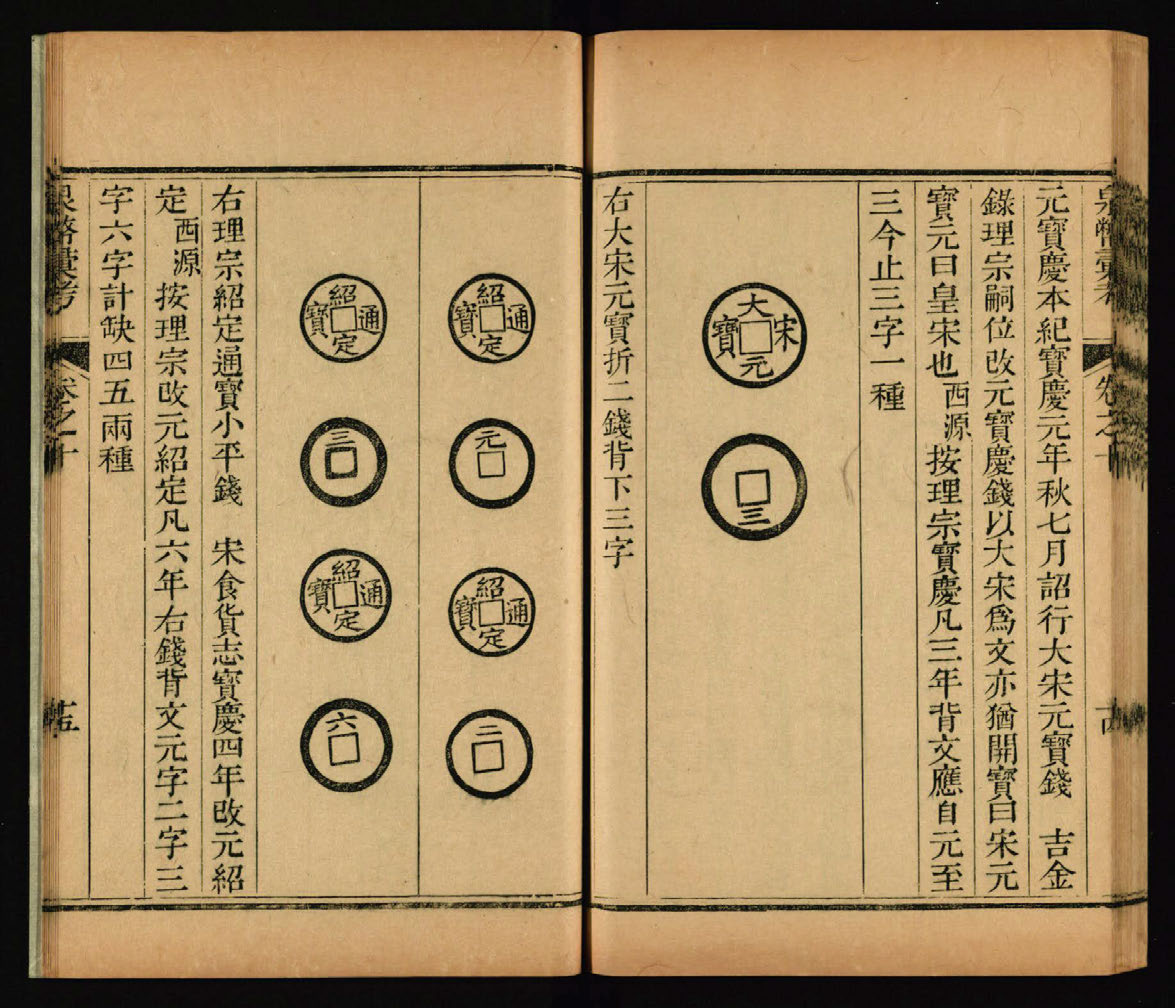 泉幣彙考
卷之十
元寶慶本紀寶慶元年秋七月詔行大宋元寶錢　吉金
錄理宗嗣位改元寶慶錢以大宋爲文亦猶開寶曰宋元
寶元曰皇宋也西源按理宗寶慶凡三年背文應自元至
三今止三字一種
大宋元寶
三
右大宋元寶折二錢背下三字
紹定通寶
元
紹定通寶
二
紹定通寶
三
紹定通寶
六
右理宗紹定通寶小平錢　宋食貨志寶慶四年改元紹
定西源按理宗改元紹定凡六年右錢背文元字二字三
字六字計缺四五兩種
泉幣彙考
卷之十